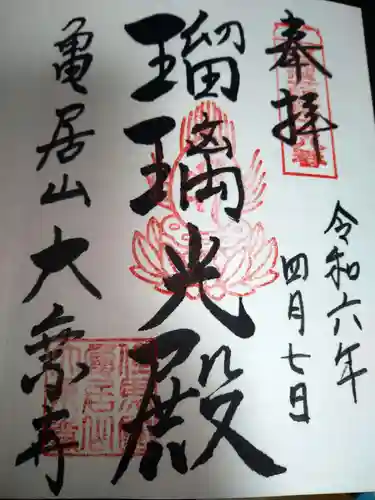 奉拝
令和六年
四月七日
瑠璃光殿
亀居山大乘寺